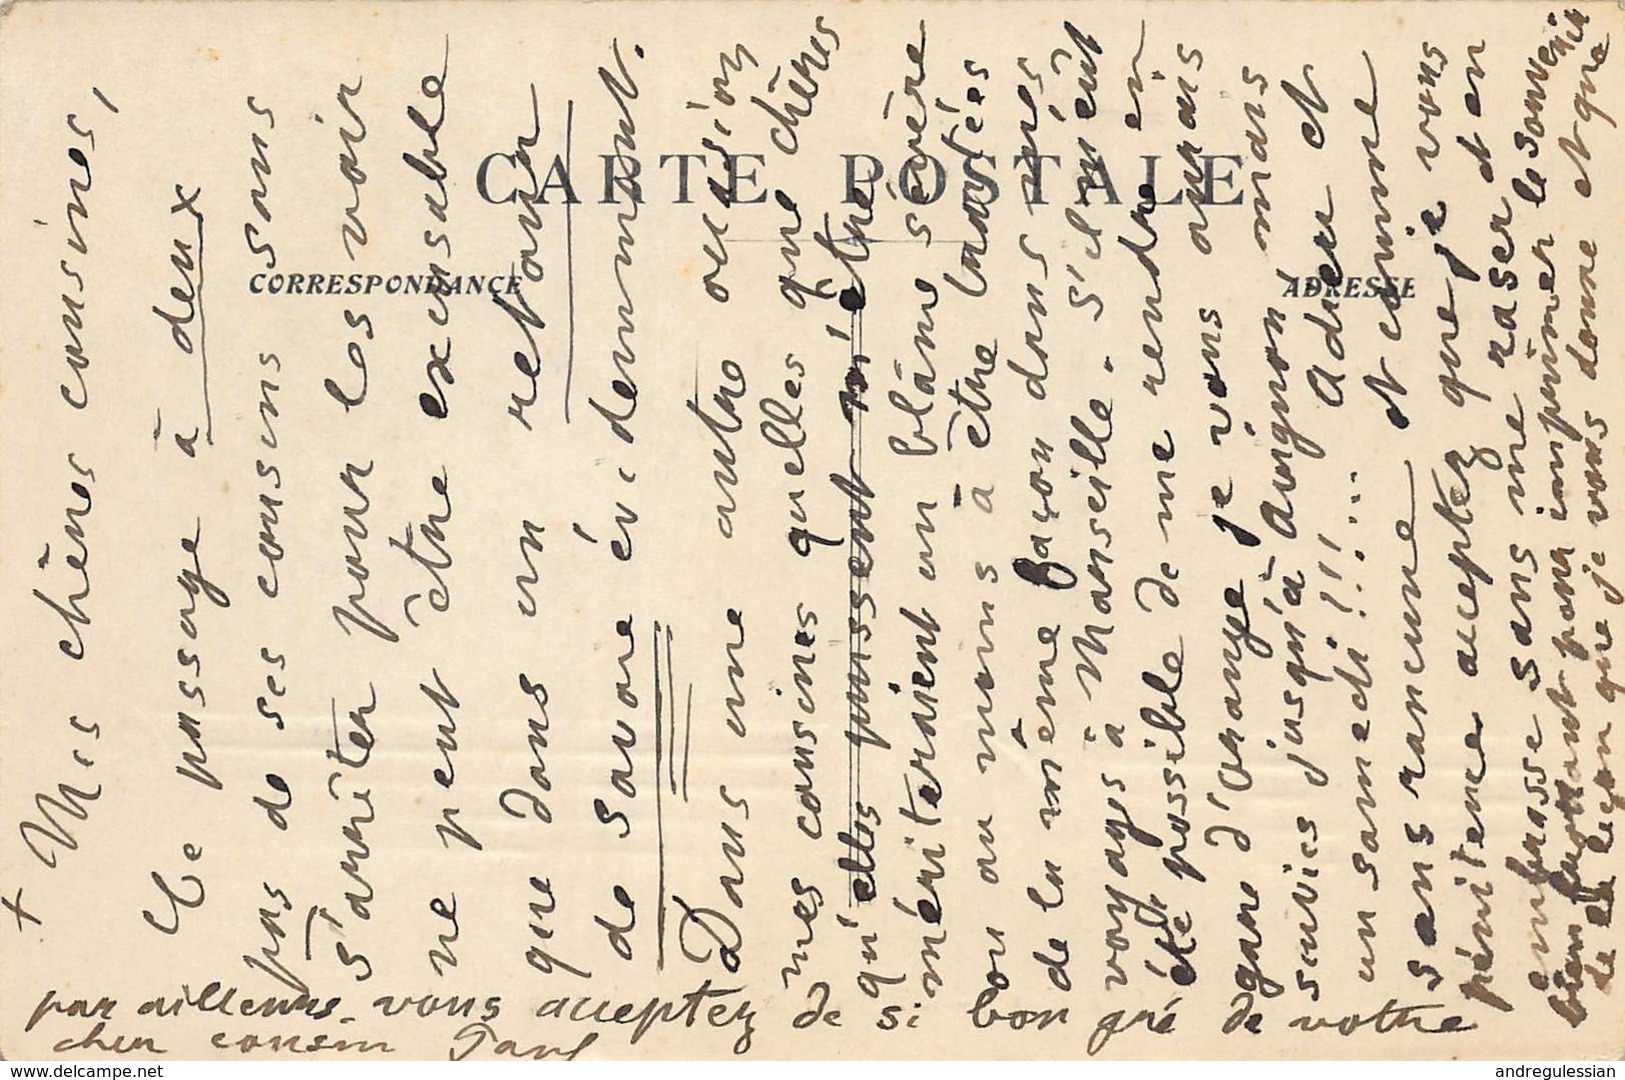 CARTE POSTALE
CORRESPONDANCE
ADRESSE
+ Mes chères cousines,
Ce passage à deux
pas de ses cousins sans
s'arrêter pour les voir
ne peut être excusable
que dans un retour
de Savoie évidemment.
Dans une autre occasion
mes cousines quelles que chères
qu'elles pussent m'être
mériteraient un blâme sévère
ou au moins à être
de la même façon dans mes
voyages à Marseille. S'il m'eût
été possible de me rendre en
gare d'Orange je vous aurais
suivies jusqu'à Avignon mais
un samedi!!!... Adieu et
sans rancune et comme
pénitence acceptez que je vous
embrasse sans me raser et en
bien pour imprimer le souvenir
de la leçon que je vous donne et que
par ailleurs vous acceptez de si bon gré de votre
cher cousin Paul
delcampe.net
andregulessian